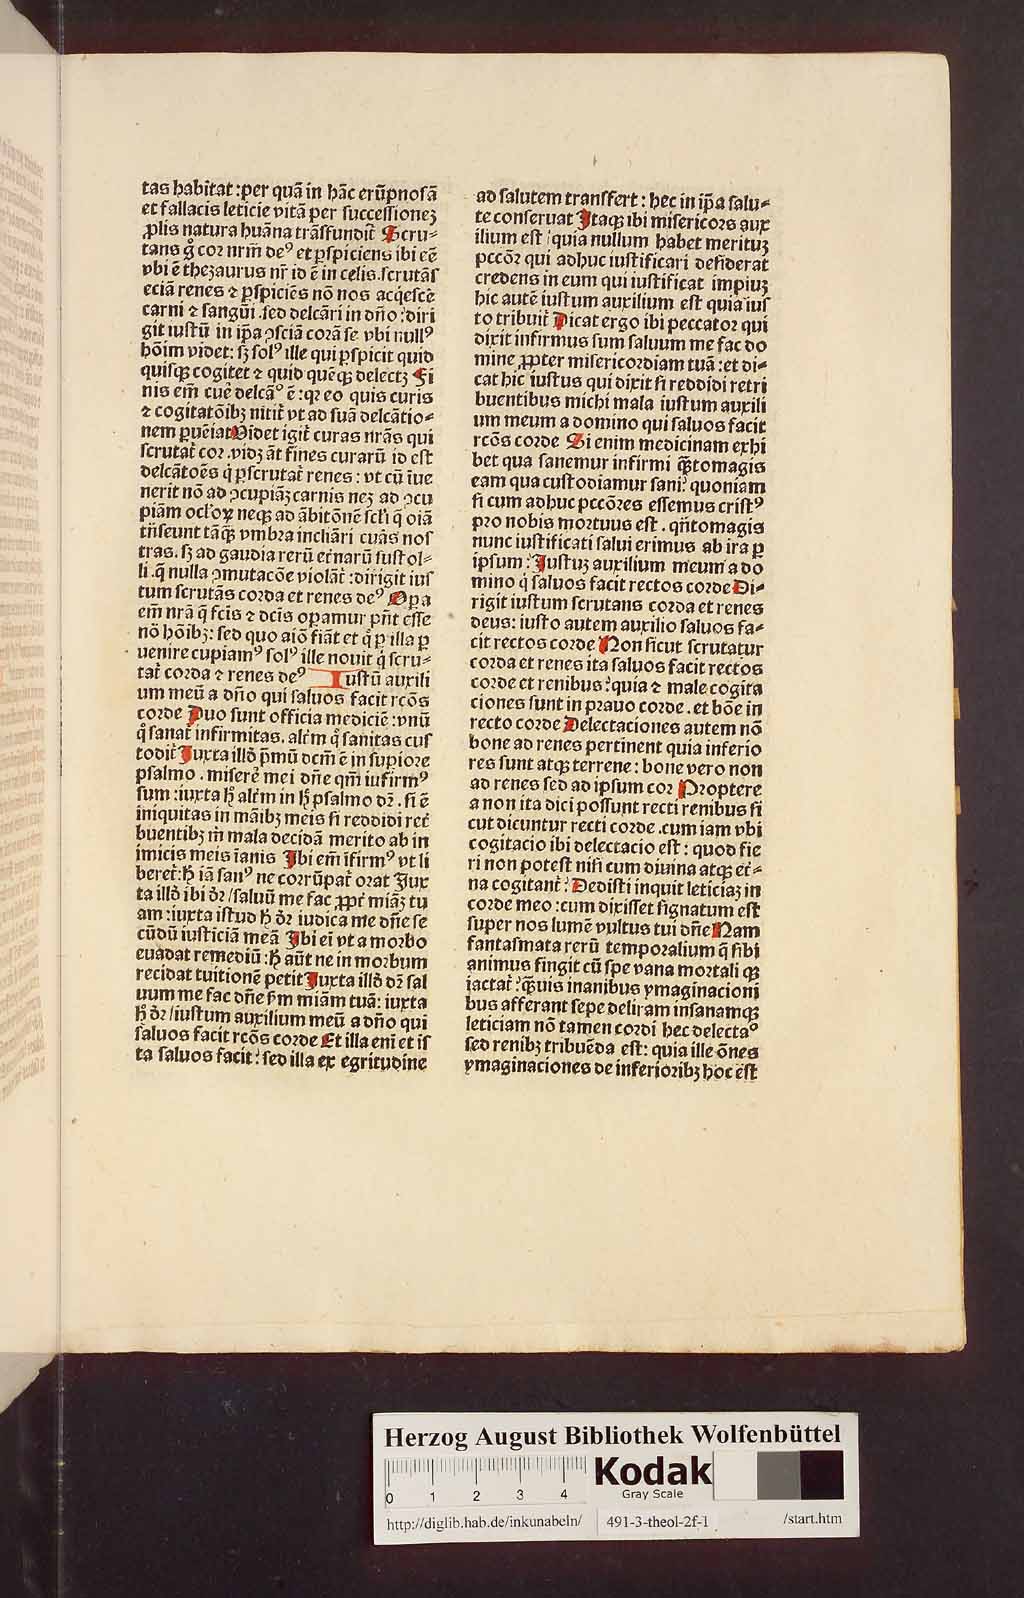 tas habitat :per quā in hāc erūpnosā
et fallacis leticie vitā per successionez
ꝓlis natura huāna trāsfundit᷑ Scru⸗
tans gͦ cor nrm̄ deꝰ et ꝑspiciens ibi eē
vbi ē thezaurus nr̄ id ē in celis.scrutās
eciā renes ⁊ ꝑspiciēs nō nos acq̇escē
carni ⁊ sangu̇i .sed delcāri in dn̄o :diri
git iustū in ip̄a ꝯsciā corā se vbi nullꝰ
hōim videt: sꝫ solꝰ ille qui ꝑspicit quid
quisqꝫ cogitet ⁊ quid quēqꝫ delectꝫ Fi
nis em̄ cuē delcāͦ ē :qꝛ eo quis curis
⁊ cogitatōibꝫ nitit᷑ vt ad suā delcātio⸗
nem ꝑuēiat Videt igit᷑ curas nrās qui
scrutat᷑ cor .vidꝫ āt fines curarū id est
delcātoēs q̇ ꝑscrutat᷑ renes : vt cū īue
nerit nō ad ꝯcupiāꝫ carnis neꝫ ad ꝯcu
piām ocl'oꝝ neqꝫ ad ābitōnē scl'i q̄ oīa
trn̄seunt tāqꝫ vmbra incliāri curās nos
tras. sꝫ ad gaudia rerū et᷑narū sustol⸗
li .q̄ nulla ꝯmutacōe violāt᷑ :dirigit ius
tum scrutās corda et renes deꝰ Oꝑa
em̄ nrā q̄ fcīs ⁊ dcīs oꝑamur pn̄t esse
nō hōibꝫ: sed quo aīo fiāt et q̊ ꝑ illa ꝑ
uenire cupiamꝰ solꝰ ille nouit q̇ scru⸗
tat᷑ corda ⁊ renes deꝰ Iustū auxili
um meū a dn̄o qui saluos facit rcōs
corde Duo sunt officia mediciē :vnū
q̊ sanat᷑ infirmitas. alt᷑m q̊ sanitas cus
todit᷑ Juxta illd̄ p̄mū dcm̄ ē in suꝑiore
psalmo . miserē mei dn̄e qm̄ iufirmꝰ
sum :iuxta hͦ alt᷑m in hͦ psalmo dꝛ̄ . si ē
iniquitas in māibꝫ meis si reddidi ret᷑
buentibꝫ m̄ mala decidā merito ab in
imicis meis īanis Ibi em̄ īfirmꝰ vt li
beret᷑: hͦ iā sanꝰ ne corrūpat᷑ orat Jux
ta illd̄ ibi dꝛ̄ /saluū me fac ꝓpt᷑ miāꝫ tu
am :iuxta istud hͦ dꝛ̄ iudica me dn̄e se
cūdū iusticiā meā Ibi ei vt a morbo
euadat remediū :hͦ aūt ne in morbum
recidat tuitionē petit Juxta illd̄ dꝛ̄ sal
uum me fac dn̄e sm̄ miām tuā: iuxta
hͦ dꝛ̄ /iustum auxilium meū a dn̄o qui
saluos facit rcōs corde Et illa eni et is
ta saluos facit : sed illa ex egritudine
ad salutem transfert : hec in ip̄a salu⸗
te conseruat Itaqꝫ ibi misericors aux
ilium est :quia nullum habet merituꝫ
pccōꝛ qui adhuc iustificari desiderat
credens in eum qui iustificat impiuꝫ
hic autē iustum auxilium est quia ius
to tribuit᷑ Dicat ergo ibi peccator qui
dixit infirmus sum saluum me fac do
mine ꝓpter misericordiam tuā :et di⸗
cat hic iustus qui dixit si reddidi retri
buentibus michi mala iustum auxili
um meum a domino qui saluos facit
rcōs corde Si enim medicinam exhi
bet qua sanemur infirmi q̄tomagis
eam qua custodiamur sani: quoniam
si cum adhuc pccōres essemus cristꝰ
pro nobis mortuus est . qn̄tomagis
nunc iustificati salui erimus ab ira ꝑ
ipsum : Justuꝫ auxilium meum a do
mino q̇ saluos facit rectos corde Di⸗
rigit iustum scrutans corda et renes
deus: iusto autem auxilio saluos fa⸗
cit rectos corde Non sicut scrutatur
corda et renes ita saluos facit rectos
corde et renibus :quia ⁊ male cogita
ciones sunt in prauo corde . et bōe in
recto corde Delectaciones autem nō
bone ad renes pertinent quia inferio
res sunt atqꝫ terrene : bone vero non
ad renes sed ad ipsum cor Proptere
a non ita dici possunt recti renibus si
cut dicuntur recti corde .cum iam vbi
cogitacio ibi delectacio est : quod fie
ri non potest nisi cum diuina atqꝫ et᷑⸗
na cogitant᷑: Dedisti inquit leticiaꝫ in
corde meo :cum dixisset signatum est
super nos lumē vultus tui dn̄e Nam
fantasmata rerū temporalium q̄ sibi
animus fingit cū spe vana mortali qꝫ
iactat᷑ :q̄uis inanibus ymaginacioni
bus afferant sepe deliram insanamqꝫ
leticiam nō tamen cordi hec delectaͦ
sed renibꝫ tribuēda est: quia ille ōnes
ymaginaciones de inferioribꝫ hoc est
Herzog August Bibliothek Wolfenbüttel
0 1 2 3 4
Kodak
Gray Scale
http://diglib.hab.de/inkunabeln/ 491-3-theol-2f-1 /start.htm